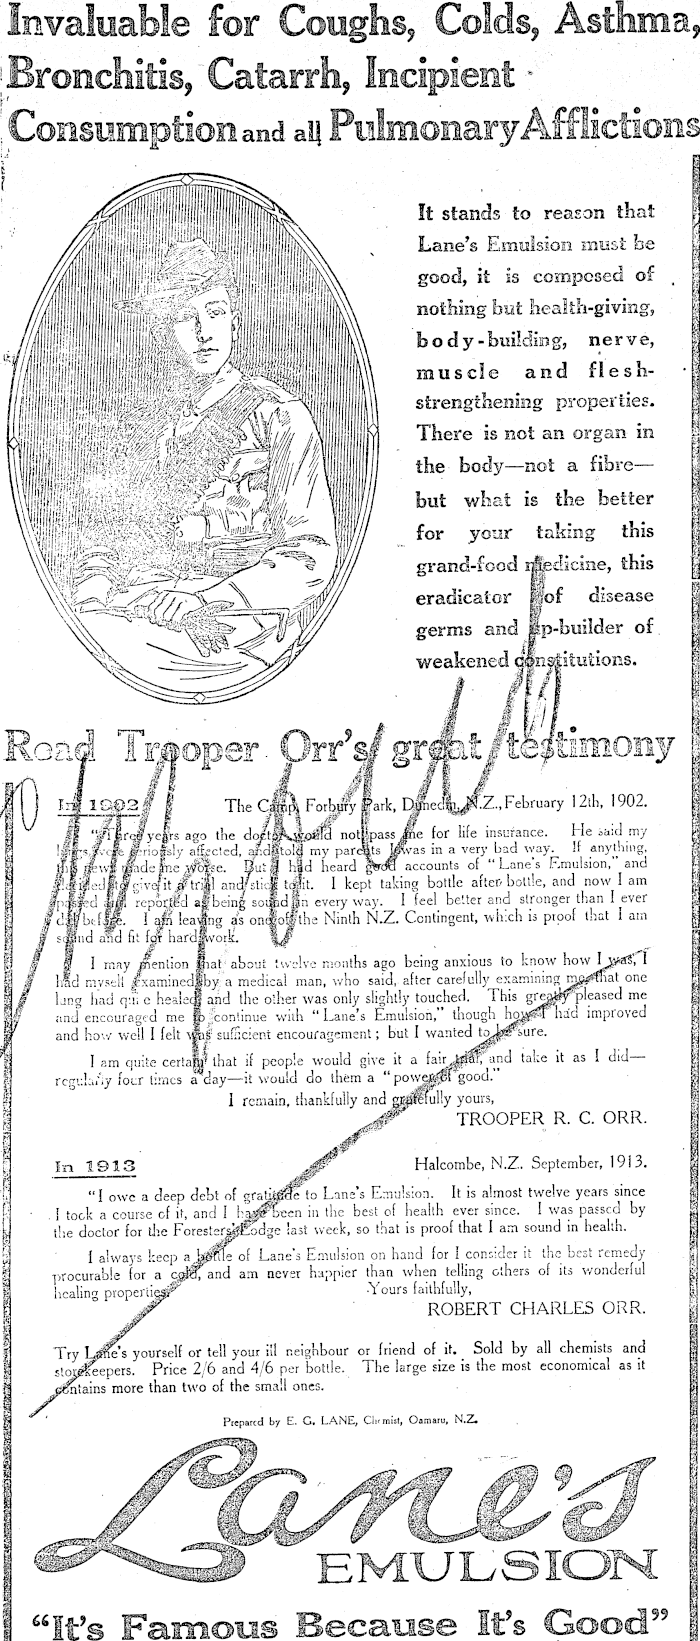 Invaluable for Coughs, Colds, Asthma,
Bronchitis, Catarrh, Incipient
Consumption and all Pulmonary Afflictions
It stands to reason that
Lane's Emulsion must be
good, it is composed of
nothing but health-giving,
body-building, nerve,
muscle and flesh-
strengthening properties.
There is not an organ in
the body—not a fibre—
but what is the better
for your taking this
grand-food medicine, this
eradicator of disease
germs and up-builder of
weakened constitutions.
Read Trooper Orr's great testimony
In 1902 The Camp, Forbury Park, Dunedin, N.Z., February 12th, 1902.
"Three years ago the doctor would not pass me for life insurance. He said my
lungs were seriously affected, and told my parents I was in a very bad way. If anything,
this news made me worse. But I had heard good accounts of "Lane's Emulsion," and
decided to give it a trial and stick to it. I kept taking bottle after bottle, and now I am
passed and reported as being sound in every way. I feel better and stronger than I ever
did before. I am leaving as one of the Ninth N.Z. Contingent, which is proof that I am
sound and fit for hard work.
I may mention that about twelve months ago being anxious to know how I was, I
had myself examined by a medical man, who said, after carefully examining me, that one
lung had quite healed and the other was only slightly touched. This greatly pleased me
and encouraged me to continue with "Lane's Emulsion," though how I had improved
and how well I felt was sufficient encouragement; but I wanted to be sure.
I am quite certain that if people would give it a fair trial, and take it as I did—
regularly four times a day—it would do them a "power of good."
I remain, thankfully and gratefully yours,
TROOPER R. C. ORR.
In 1913 Halcombe, N.Z. September, 1913.
"I owe a deep debt of gratitude to Lane's Emulsion. It is almost twelve years since
I took a course of it, and I have been in the best of health ever since. I was passed by
the doctor for the Foresters' Lodge last week, so that is proof that I am sound in health.
I always keep a bottle of Lane's Emulsion on hand for I consider it the best remedy
procurable for a cold, and am never happier than when telling others of its wonderful
healing properties. Yours faithfully,
ROBERT CHARLES ORR.
Try Lane's yourself or tell your ill neighbour or friend of it. Sold by all chemists and
storekeepers. Price 2/6 and 4/6 per bottle. The large size is the most economical as it
contains more than two of the small ones.
Prepared by E. G. LANE, Chemist, Oamaru, N.Z.
Lane's
EMULSION
"It's Famous Because It's Good"